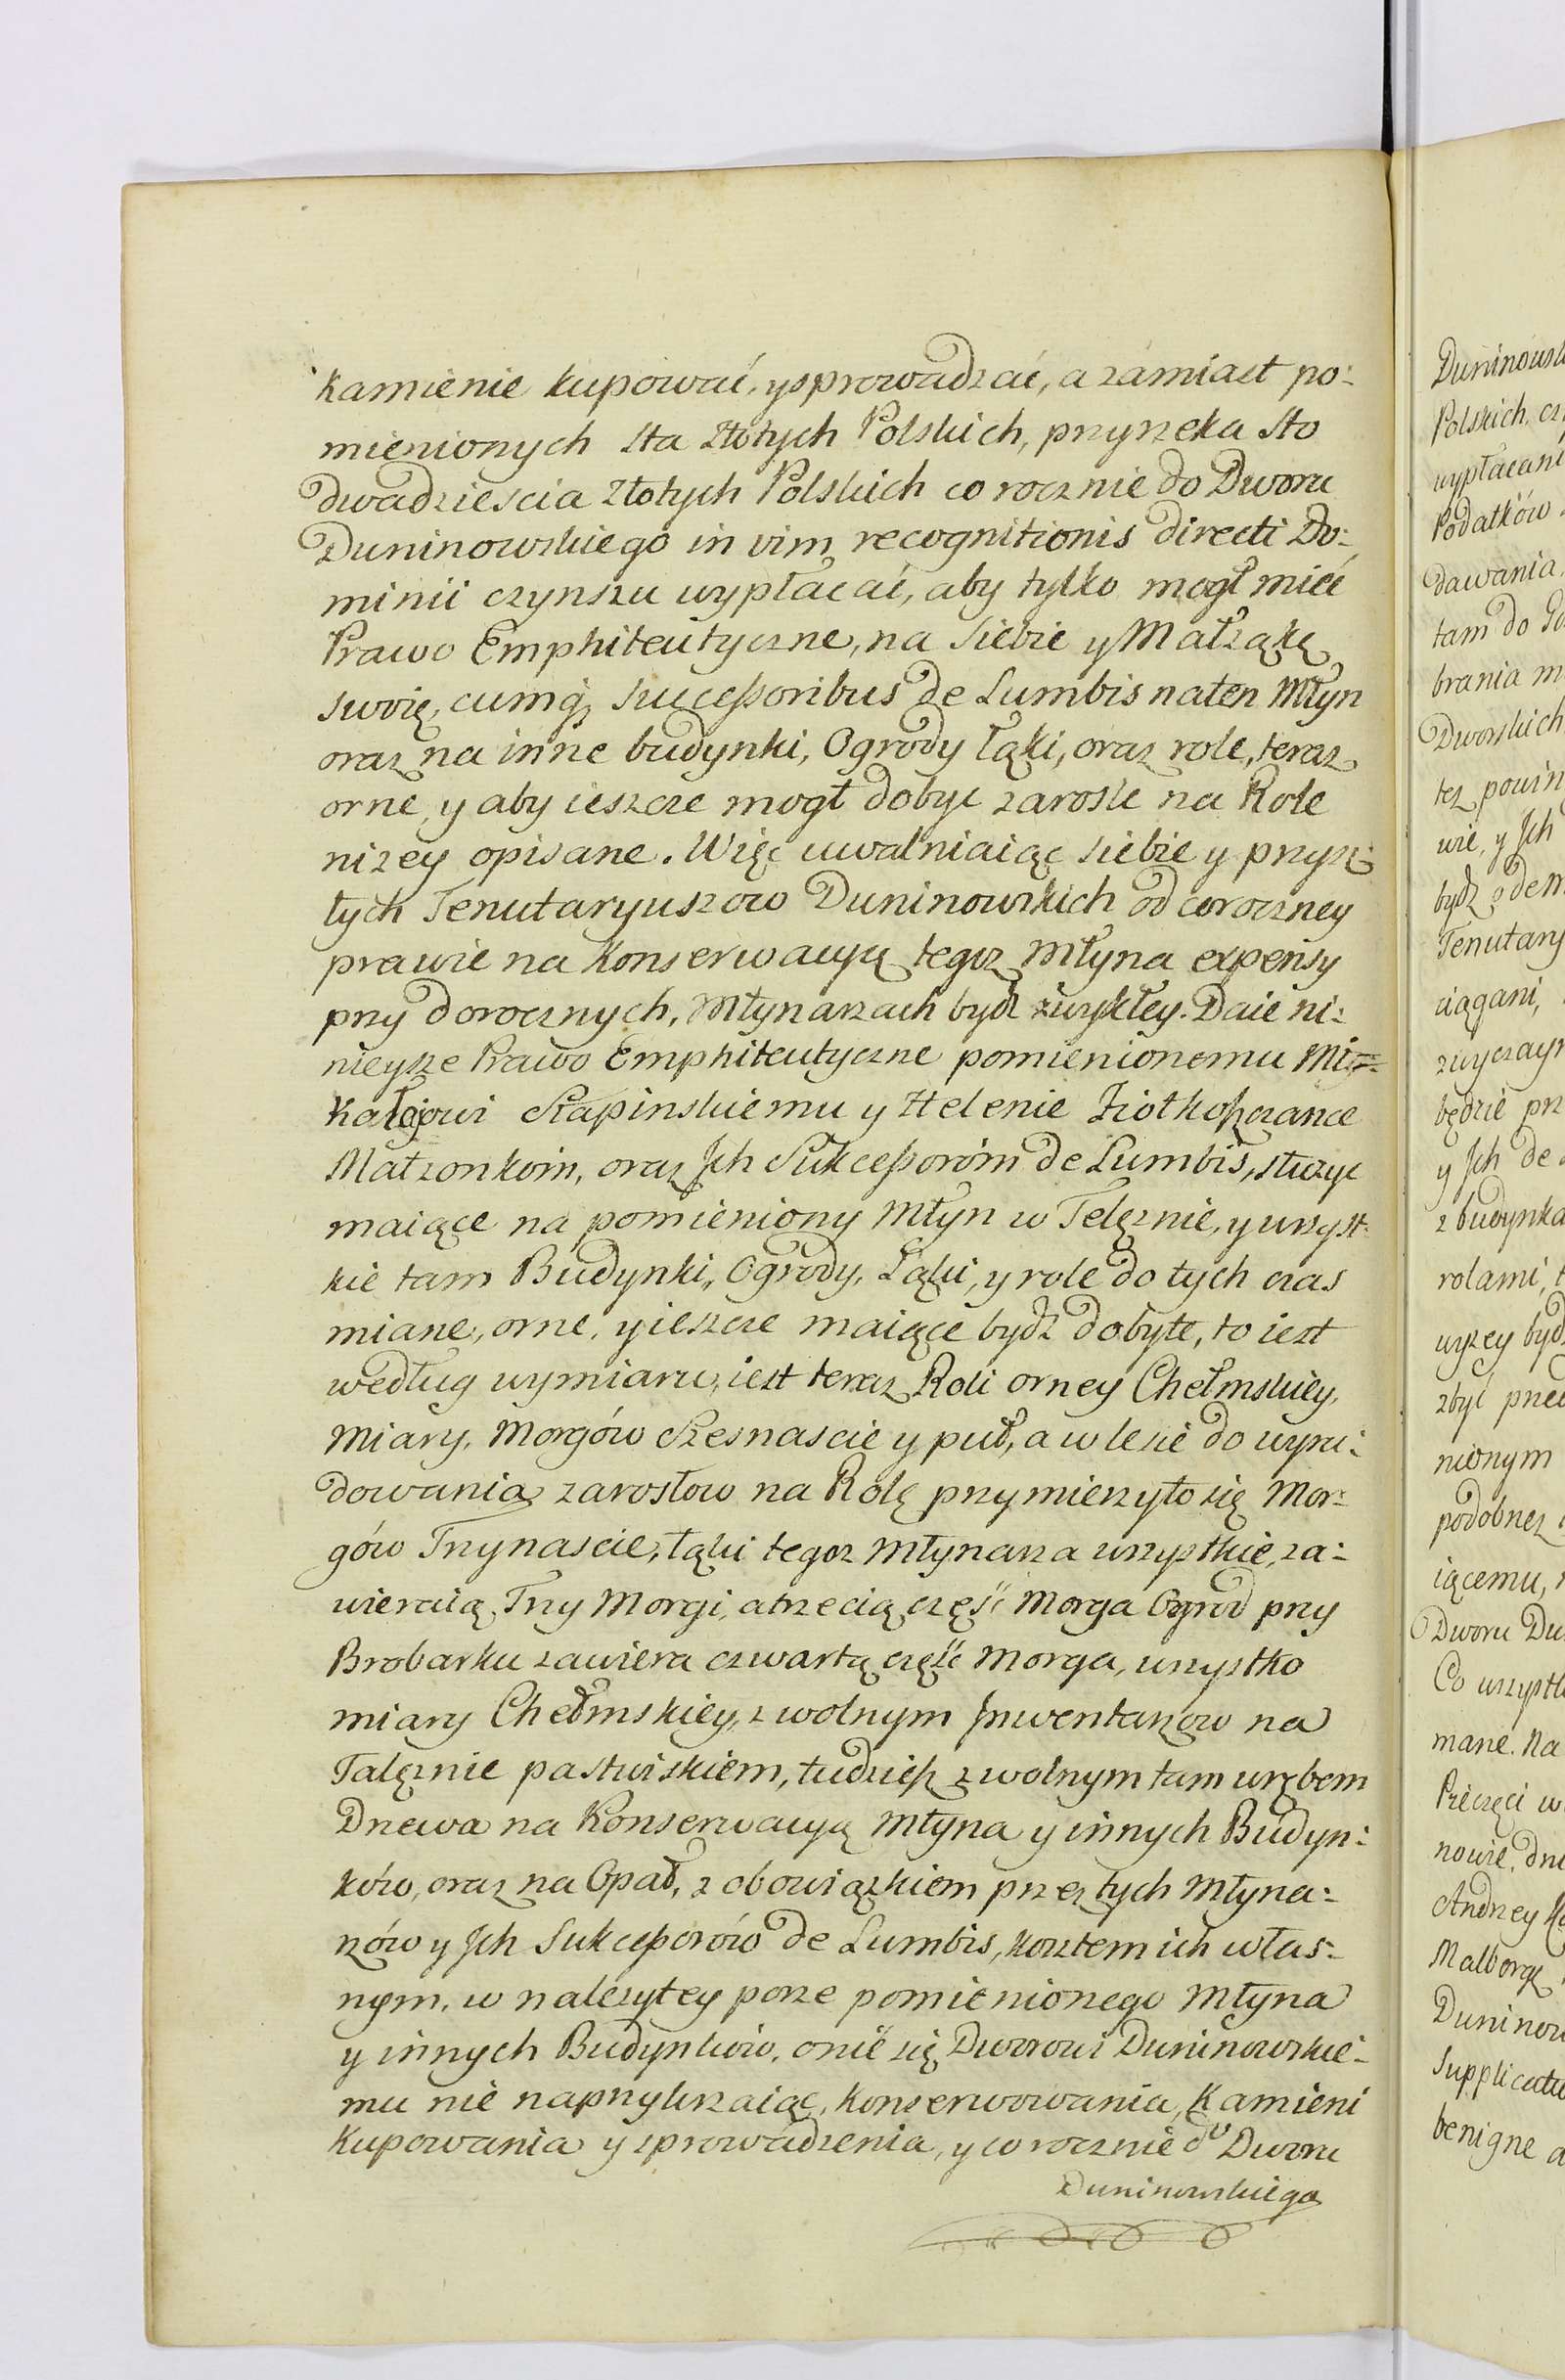 kamienie kupować, y sprowadzać, a zamiast po:
mienionych sta złotych Polskich, przyrzeka sto
dwadziescia złotych Polskich co rocznie do Dworu
Duninowskiego in vim recognitionis directi Do:
minii czynszu wypłacać, aby tylko mogł mieć
Prawo Emphiteutyczne, na siebie y Małząkę
swoię, cumq; successoribus de Lumbis na ten Młyn
oraz na inne budynki, Ogrody łąki, oraz role, teraz
orne, y aby ieszcze mogł dobyc zarosle na Role
nizey opisane. Więc uwalniaiąc siebie y przysz:
łych Tenutaryuszow Duninowskich od coroczney
prawie na konserwacyą tegoz Młyna expensy
przy dorocznych, Młynarzach bydź zwykłey. Daie ni:
nieysze Prawo Emphiteutyczne pomienionemu Mi=
kołajowi Szapinskiemu y Helenie Ziołkoszczance
Małzonkom, oraz Jch Sukcessorom de Lumbis, słuzyc
maiące na pomieniony Młyn w Telęznie, y wszyst:
kie tam Budynki, Ogrody, Łąki, y role do tych czas
miane, orne, y ieszcze maiące bydź dobyte, to iest
według wymiaru, iest teraz Roli orney Chełmskiey,
Miary, Morgów Szesnascie y puł, a w lesie do wyru:
dowania zarosłow na Rolę przymierzyło się Mor:
gów Trzynascie, łąki tegoz Młynarza wszystkie, za:
wieraią, Trzy Morgi, a trzecią część Morga Ogrod przy
Brobarku zawiera czwartą część Morga, wszystko
miary Chełmskiey, z wolnym Jnwentarzow na
Talęznie pastwiskiem, tudziesz z wolnym tam wrębem
Drzewa na Konserwacyą Młyna y innych Budyn:
ków, oraz na Opał, z obowiązkiem przez tych Młyna:
rzów y Jch Sukcessorów de Lumbis, kosztem ich włas:
nym, w nalezytey porze pomienionego Młyna
y innych Budynków, o nic się Dworowi Duninowskie:
mu nie naprzykrzaiąc, konserwowania, Kamieni
Kupowania y sprowadzenia, y co rocznie do Dworu
Duninowskiego
Polskich,
wypłacani
Podatków
dawania
tam do
brania m
Dworskich
tez powin
wie, y Jch
bydź odem
Tenutary
ciągani,
zwyczayn
będzie prz
y Jch de
z budynka
rolami,
wyzey bydź
zbyć
nionym
podobnez
iącemu,
Dworu Du
Co wszystk
mane. Na
Pieczęci w
nowie, dni
Andrzey
Malborg
Duninow
Supplicatu
benigne a